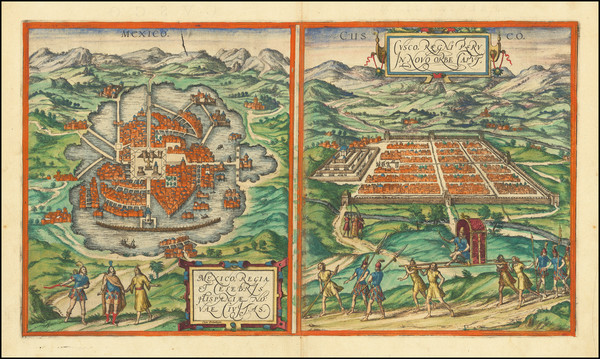 MEXICO.
CUS
CO.
CVSCO, REGNI PERV
IN NOVO ORBE CAPVT.
MEXICO, REGIA
ET CELEBRIS
HISPANIÆ NO
VAE CIVITAS.